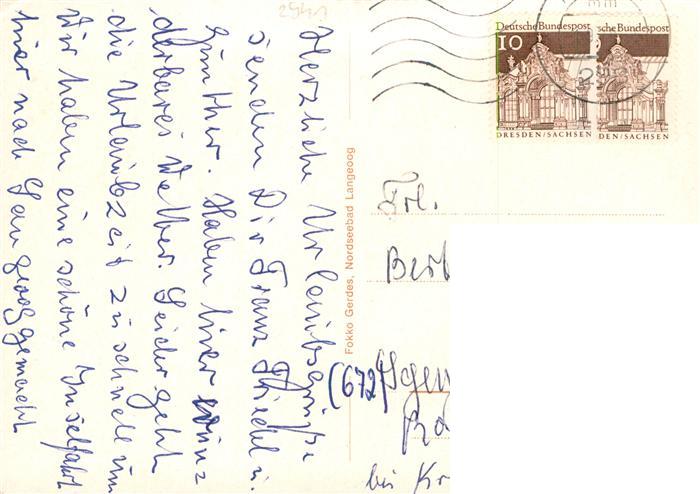 2941
Herzliche Urlaubsgrüße
senden Dir Franz Friedel u.
Günther. Haben hier wunz
derbares Wetter. Leider geht
die Urlaubzeit zu schnell um
Wir haben eine schöne Inselfahrt
hier nach Langeoog gemacht
Fokko Gerdes, Nordseebad Langeoog
Deutsche Bundespost
10
DRESDEN/SACHSEN
sche Bundespost
DEN/SACHSEN
Frl.
(672)
bei Kr